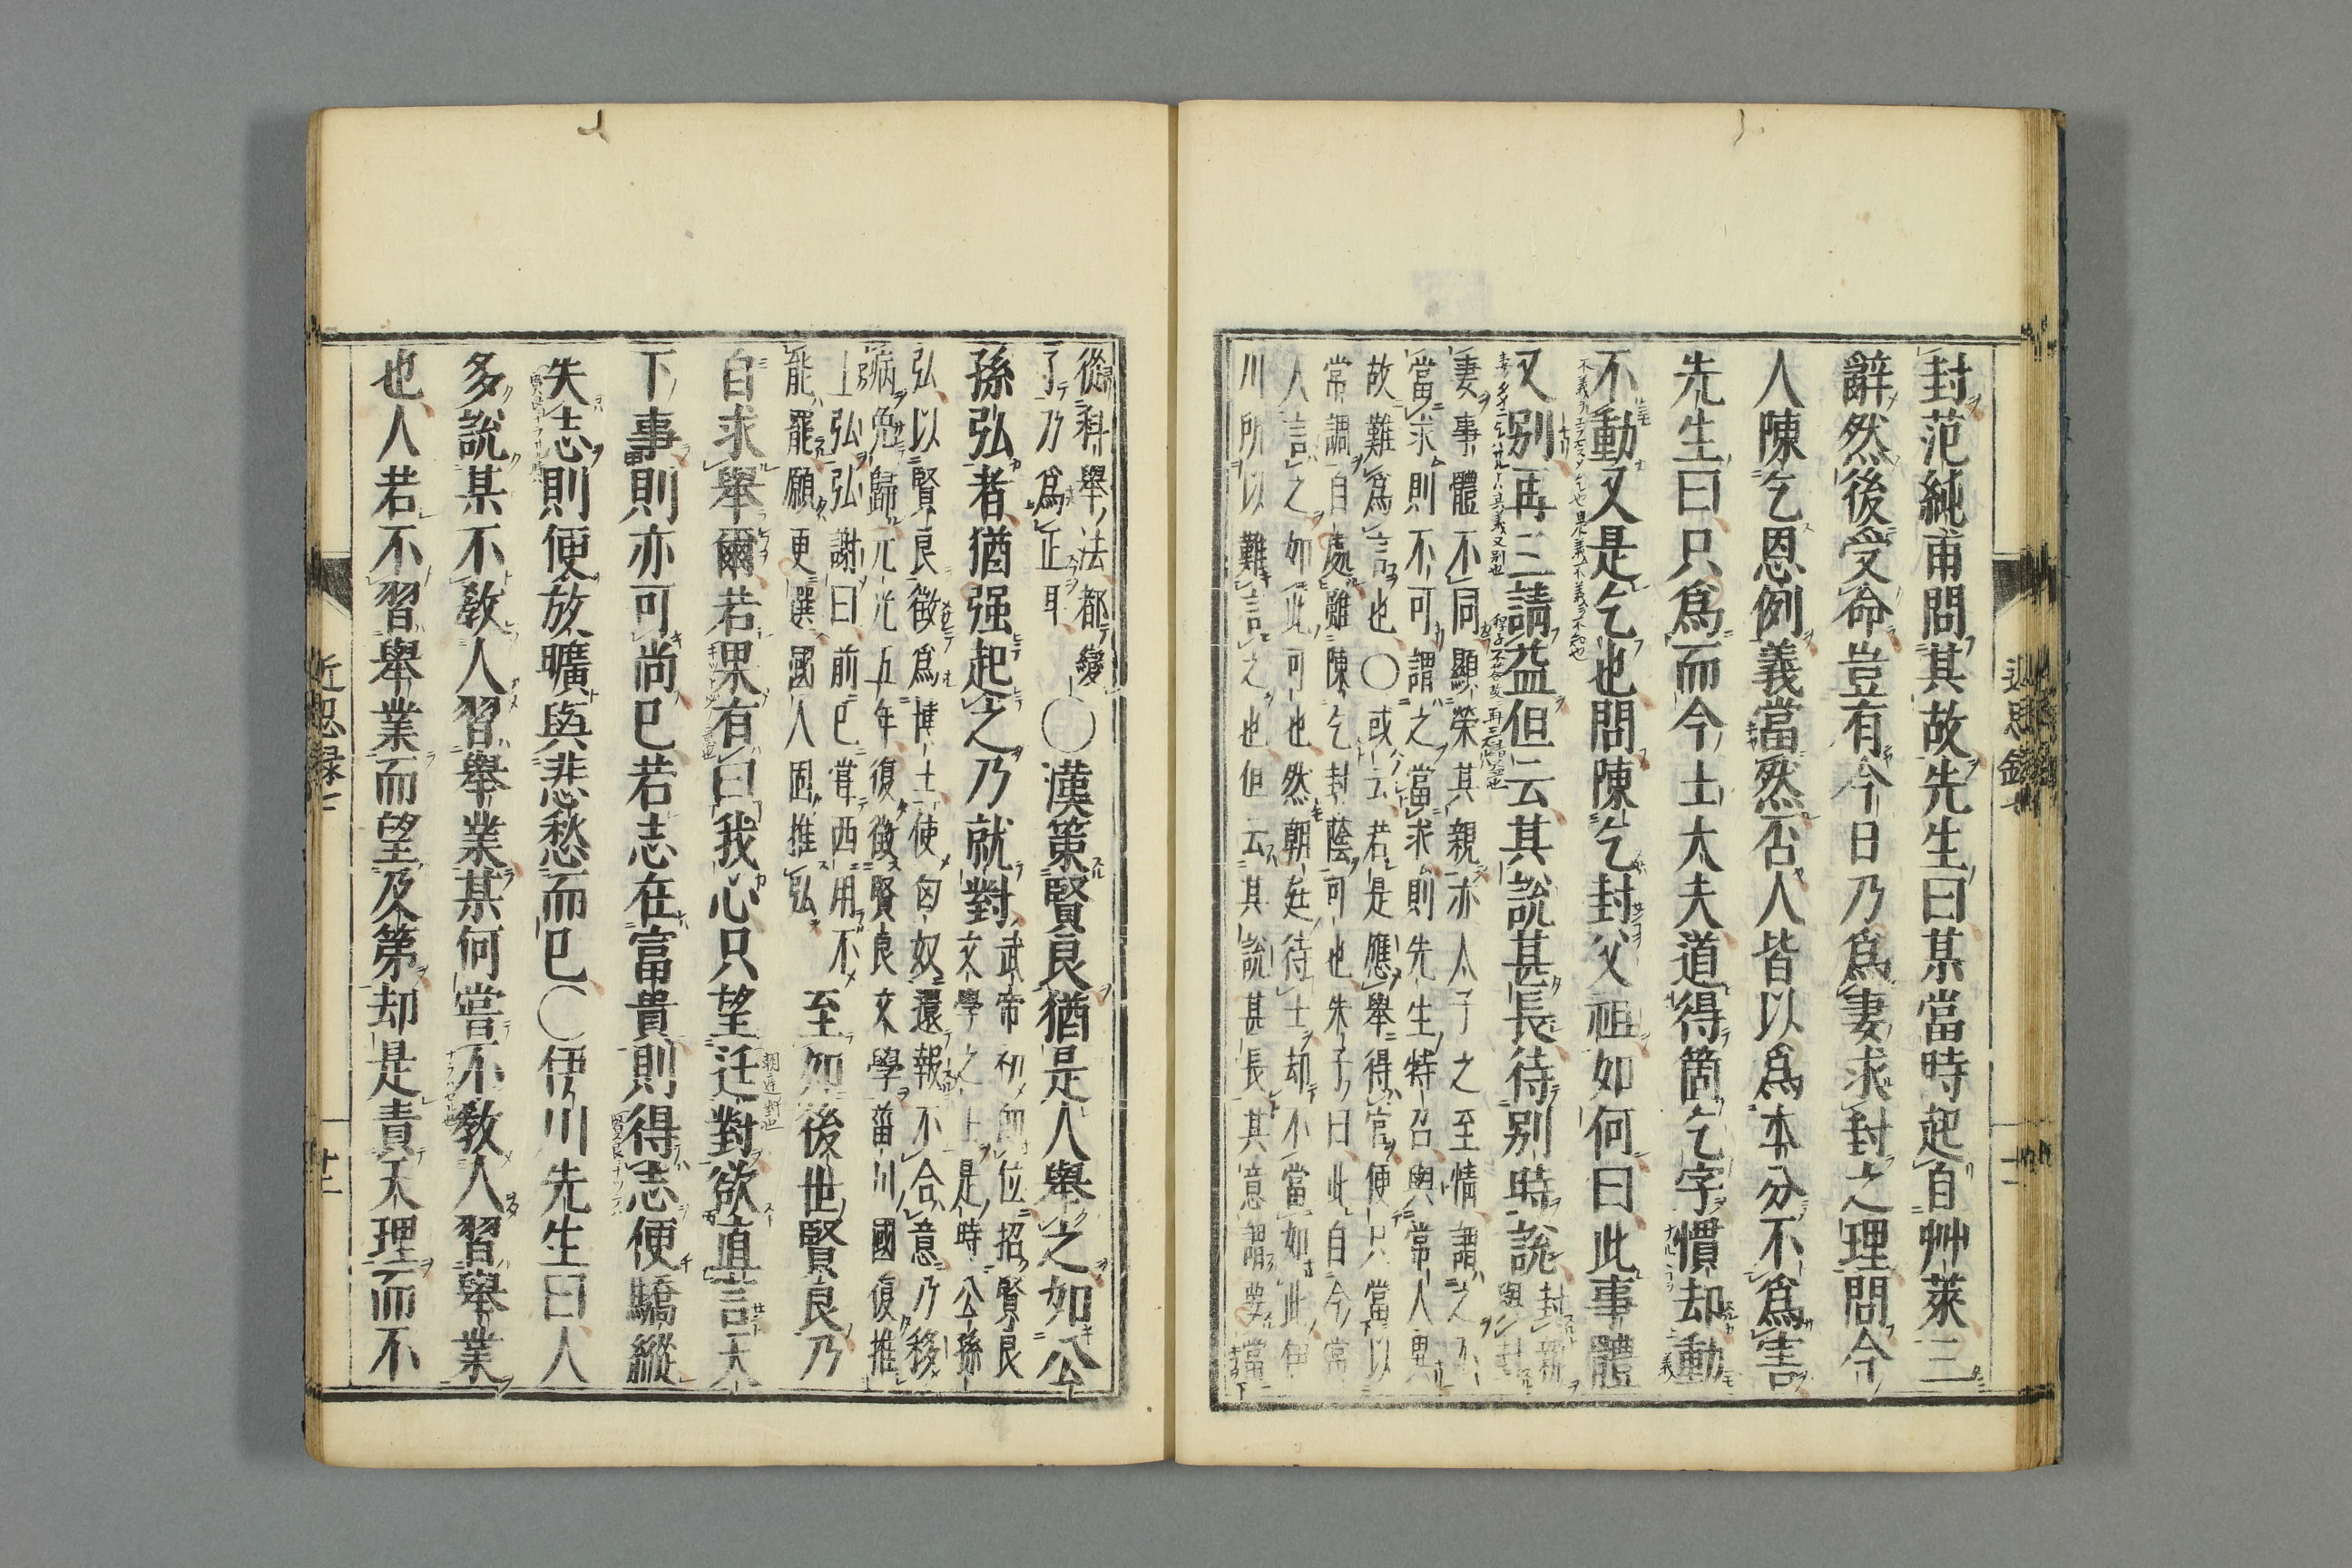 封范純甫問其故先生曰某當時起自艸萊三
辭然後受命豈有今日乃爲妻求封之理問今
人陳乞恩例義當然否人皆以爲本分不爲害
先生曰只爲而今士大夫道得箇乞字慣却動
不動又是乞也問陳乞封父祖如何曰此事體
又别再三請益但云其說甚長待别時說
封親與封
妻事體不同顯榮其親亦人子之至情謂之不
當求則不可謂之當求則先生特召與常人異
故難爲言也○或云若是應舉得官便只當以
常調自處雖陳乞封蔭可也朱子曰此自今常
人言之如此可也然朝廷待士却不當如此伊
川所以難言之也但云其說甚長其意謂要當
從科舉法都變
了乃爲正耳
○漢策賢良猶是人舉之如公
孫弘者猶强起之乃就對
武帝初卽位招賢良
文學之士是時公孫
弘以賢良徵爲博士使匈奴還報不合意乃移
病免歸元光五年復徵賢良文學菑川國復推
上弘弘謝曰前已嘗西用不
能罷願更選國人固推弘
至如後世賢良乃
自求舉爾若果有曰我心只望廷對欲直言天
下事則亦可尚已若志在富貴則得志便驕縱
失志則便放曠與悲愁而已○伊川先生曰人
多說某不敎人習舉業某何嘗不敎人習舉業
也人若不習舉業而望及第却是責天理而不
近思録七